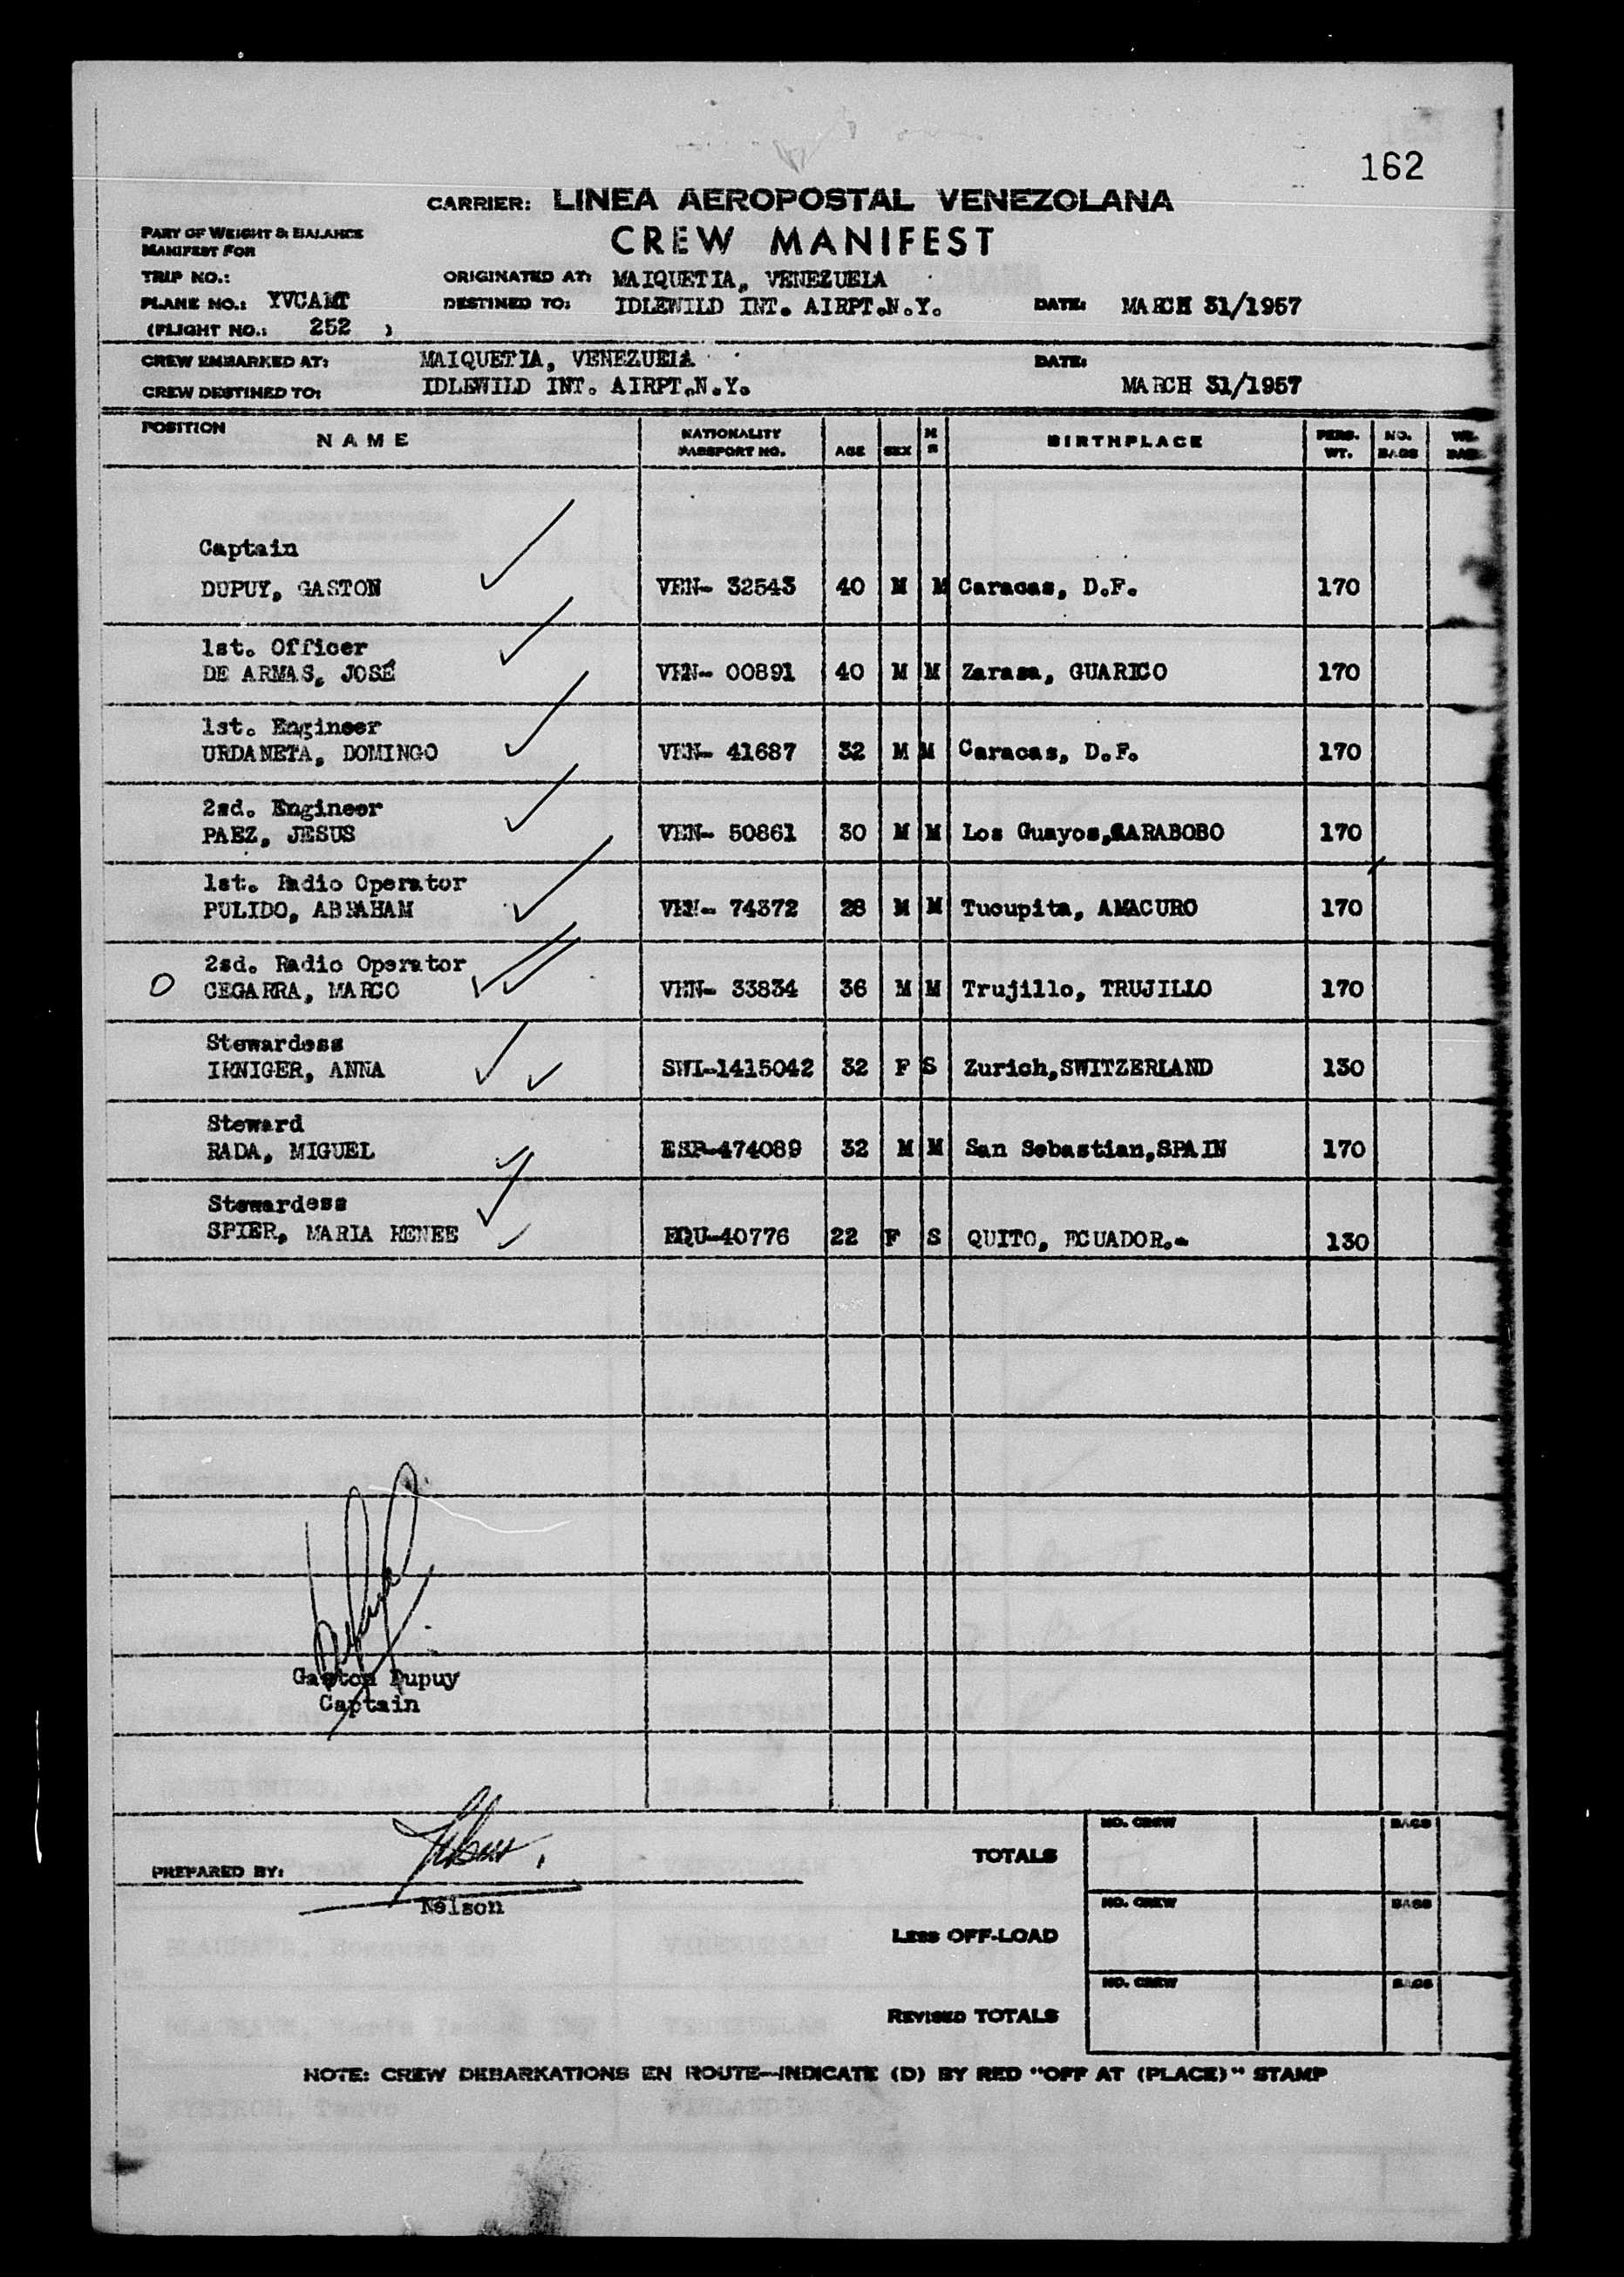 162
CARRIER: LINEA AEROPOSTAL VENEZOLANA
PART OF WEIGHT & BALANCE
MANIFEST FOR
CREW MANIFEST
TRIP NO.: ORIGINATED AT: MAIQUETIA, VENEZUELA
PLANE NO.: YVCAMT DESTINED TO: IDLEWILD INT. AIRPT.N.Y. DATE: MARCH 31/1957
(FLIGHT NO.: 252 )
CREW EMBARKED AT: MAIQUETIA, VENEZUELA DATE:
CREW DESTINED TO: IDLEWILD INT. AIRPT.N.Y. MARCH 31/1957
POSITION NAME NATIONALITY PASSPORT NO. AGE SEX M S BIRTHPLACE PERS. WT. NO. BAGS WT. BAGS
Captain
DUPUY, GASTON VEN- 32543 40 M M Caracas, D.F. 170
1st. Officer
DE ARMAS, JOSÉ VEN- 00891 40 M M Zaraza, GUARICO 170
1st. Engineer
URDANETA, DOMINGO VEN- 41687 32 M M Caracas, D.F. 170
2sd. Engineer
PAEZ, JESUS VEN- 50861 30 M M Los Guayos,CARABOBO 170
1st. Radio Operator
PULIDO, ABRAHAM VEN- 74372 28 M M Tucupita, AMACURO 170
2sd. Radio Operator
O CEGARRA, MARCO VEN- 33834 36 M M Trujillo, TRUJILLO 170
Stewardess
IRNIGER, ANNA SWI-1415042 32 F S Zurich,SWITZERLAND 130
Steward
RADA, MIGUEL ESP-474089 32 M M San Sebastian,SPAIN 170
Stewardess
SPIER, MARIA RENEE EQU-40776 22 F S QUITO, ECUADOR.- 130
Gaston Dupuy
Captain
PREPARED BY:
Nelson
TOTALS NO. CREW BAGS
LESS OFF-LOAD NO. CREW BAGS
REVISED TOTALS NO. CREW BAGS
NOTE: CREW DEBARKATIONS EN ROUTE—INDICATE (D) BY RED "OFF AT (PLACE)" STAMP